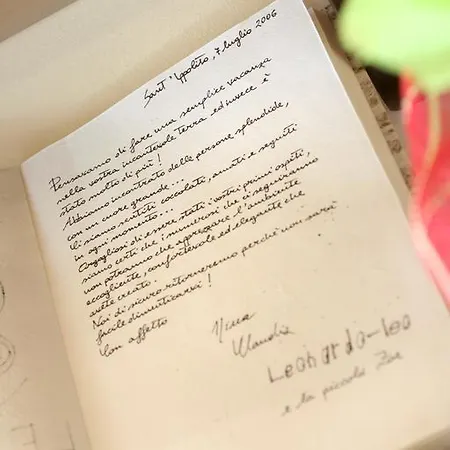 Sant'Ippolito, 7 luglio 2006
Pensavamo di fare una semplice vacanza
nella vostra incantevole terra ed invece è
stato molto di più!
Abbiamo incontrato delle persone splendide,
con un cuore grande...
Ci siamo sentiti coccolati, amati e seguiti
in ogni momento...
Orgogliosi di essere stati i vostri primi ospiti,
siamo certi che i numerosi che ci seguiranno
non potranno che apprezzare l'ambiente
accogliente, confortevole ed elegante che
avete creato.
Noi di sicuro ritorneremo perché non sarà
facile dimenticarsi!
Con affetto
Claudia
Leonardo-leo
e la piccola Zoe